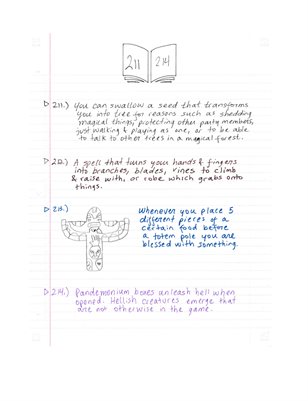 211 214
211.) You can swallow a seed that transforms
you into tree for reasons such as shedding
magical things, protecting other party members,
just walking & playing as one, or to be able
to talk to other trees in a magical forest.
212.) A spell that turns your hands & fingers
into branches, blades, vines to climb
& raise with, or robe which grabs onto
things.
213.)
Whenever you place 5
different pieces of a
certain food before
a totem pole you are
blessed with something.
214.) Pandemonium boxes unleash hell when
opened. Hellish creatures emerge that
are not otherwise in the game.